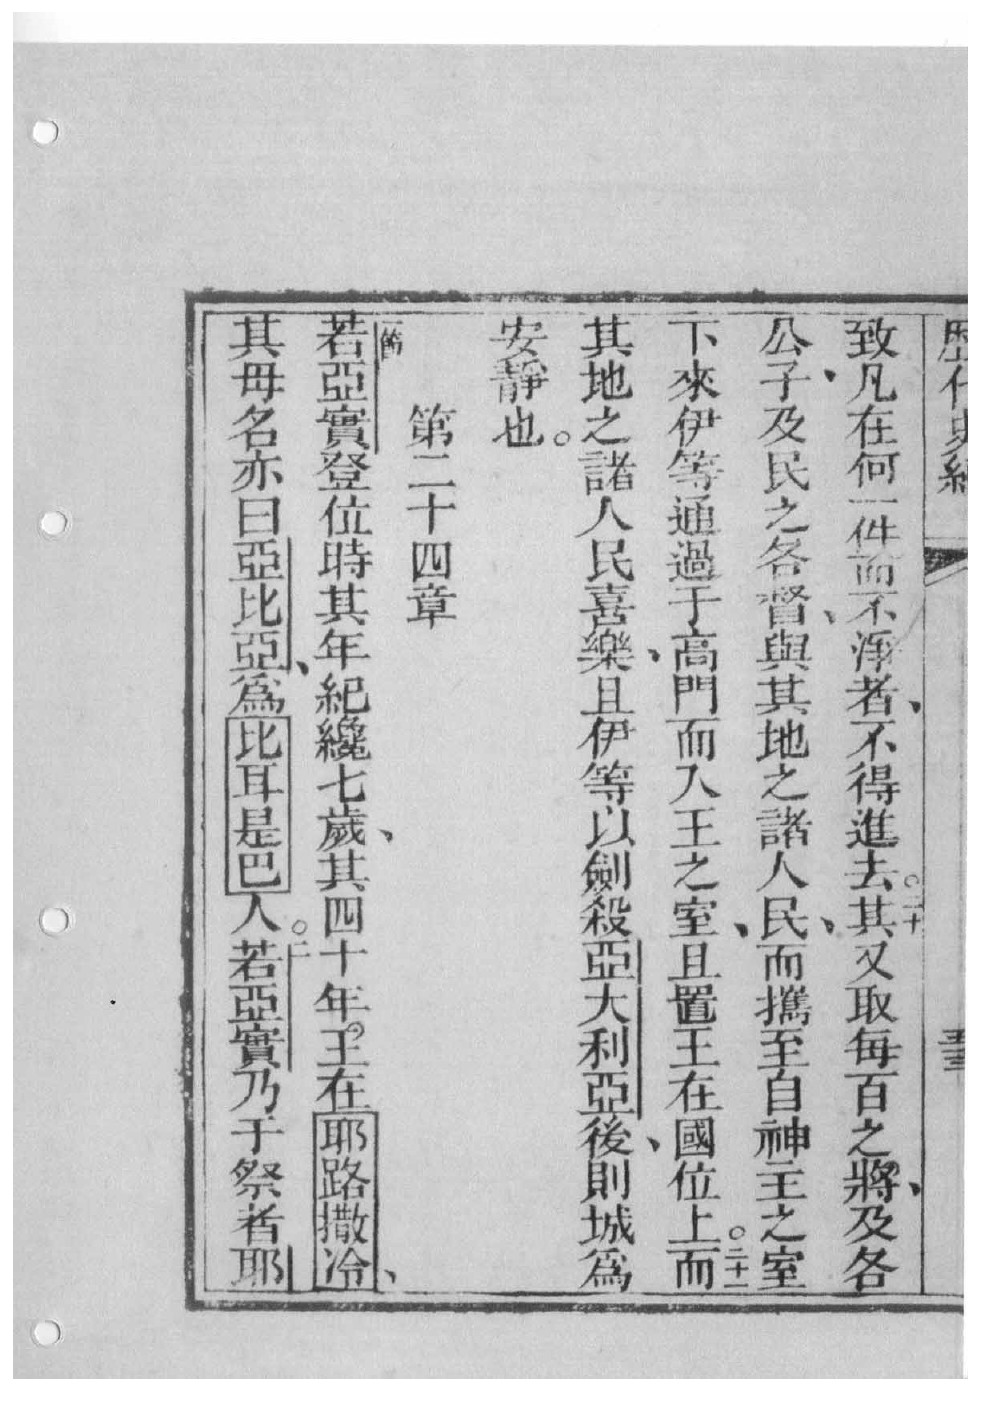 歷代史紀
致凡在何一件而不淨者、不得進去。二十其又取每百之將、及各
公子、及民之各督、與其地之諸人民、而攜至自神主之室
下來伊等通過于高門而入王之室、且置王在國位上。二十一而
其地之諸人民喜樂、且伊等以劍殺亞大利亞後、則城為
安靜也。
第二十四章
一節若亞實登位時其年紀纔七歲、其四十年。王在耶路撒冷、
其母名亦曰亞比亞、為比耳是巴人。二若亞實乃于祭者耶